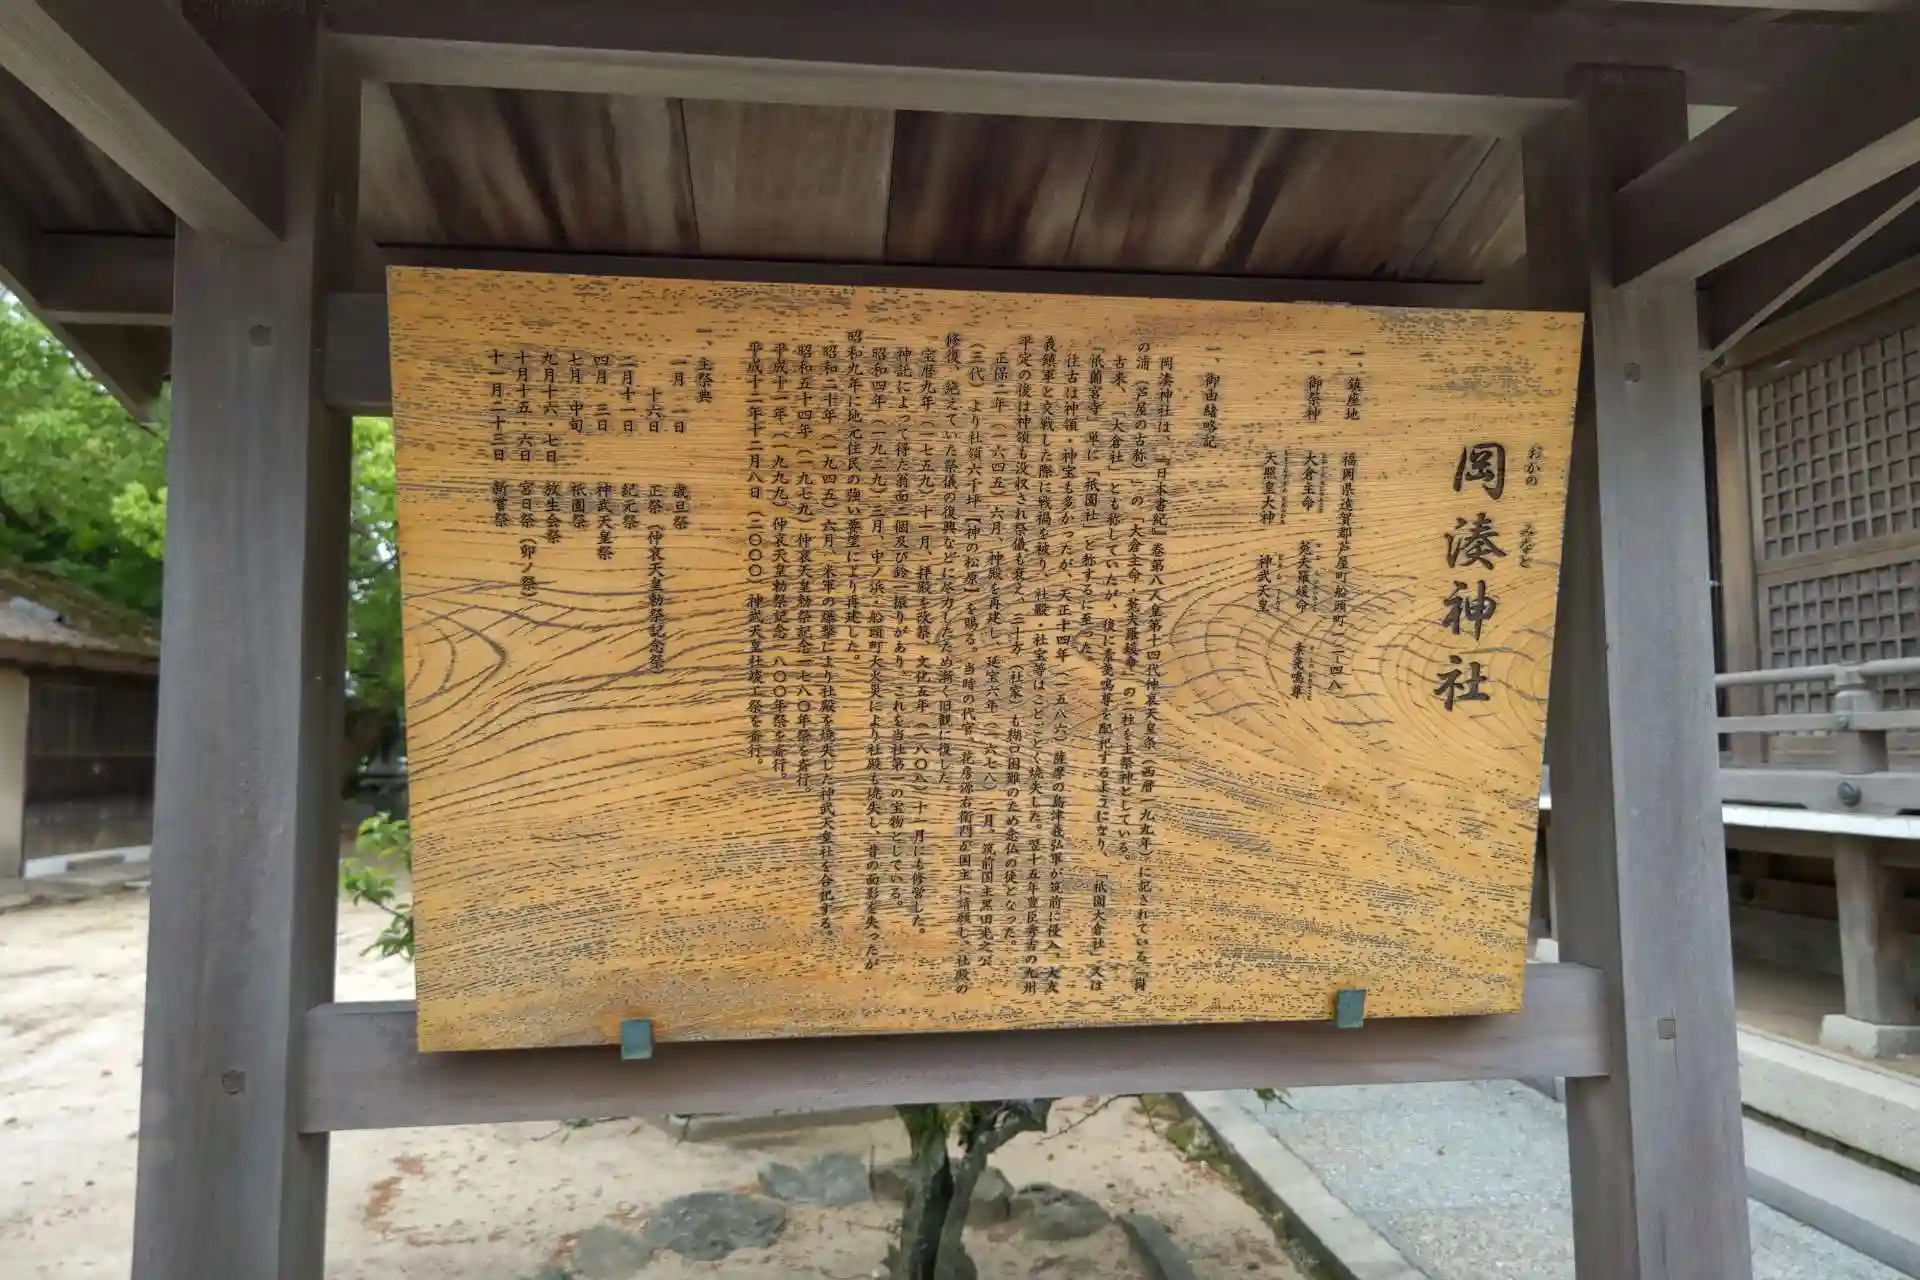 岡湊神社
おかの みなと
一、鎮座地 福岡県遠賀郡芦屋町船頭町一二―四八
一、御祭神 大倉主命 菟夫羅媛命 素戔嗚尊
天照皇大神 神武天皇
一、御由緒略記
岡湊神社は、『日本書紀』巻第八人皇第十四代仲哀天皇条(西暦一九九年)に記されている「岡
の浦(芦屋の古称)」の「大倉主命・菟夫羅媛命」の二柱を主祭神としている。
古来、「大倉社」とも称していたが、後に素戔嗚尊を配祀するようになり、「祇園大倉社」又は
「祇園宮寺」単に「祇園社」と称するに至った。
往古は神領・神宝も多かったが、天正十四年(一五八六)薩摩の島津義弘軍が筑前に侵入、大友
義鎮軍と交戦した際に戦禍を被り、社殿・社宝等はことごとく焼失した。翌十五年豊臣秀吉の九州
平定の後は神領も没収され祭儀も衰え、三十方(社家)も糊口困難のため念仏の徒となった。
正保二年(一六四五)六月、神殿を再建し、延宝六年(一六七八)二月。筑前国主黒田光之公
(三代)より社領六千坪【神の松原】を賜る。当時の代官、花房源右衛門が国主に請願し、社殿の
修復、絶えていた祭儀の復興などに尽力したため漸く旧観に復した。
宝暦九年(一七五九)十一月、拝殿を改築、文化五年(一八〇八)十一月にも修営した。
神託によって得た翁面二個及び鈴一振りがあり、これを当社第一の宝物としている。
昭和四年(一九二九)三月、中ノ浜・船頭町大火災により社殿も焼失し、昔の面影を失ったが
昭和九年に地元住民の強い要望により再建した。
昭和二十年(一九四五)六月、米軍の爆撃により社殿を焼失した神武天皇社を合祀する。
昭和五十四年(一九七九)仲哀天皇勅祭記念一七八〇年祭を斎行。
平成十一年(一九九九)仲哀天皇勅祭記念一八〇〇年祭を斎行。
平成十二年十二月八日(二〇〇〇)神武天皇社竣工祭を斎行。
一、主祭典
一月 一日 歳旦祭
十六日 正祭(仲哀天皇勅祭記念祭)
二月十一日 紀元祭
四月 三日 神武天皇祭
七月 中旬 祇園祭
九月十六・七日 放生会祭
十月十五・六日 宮日祭(卯ノ祭)
十一月二十三日 新嘗祭